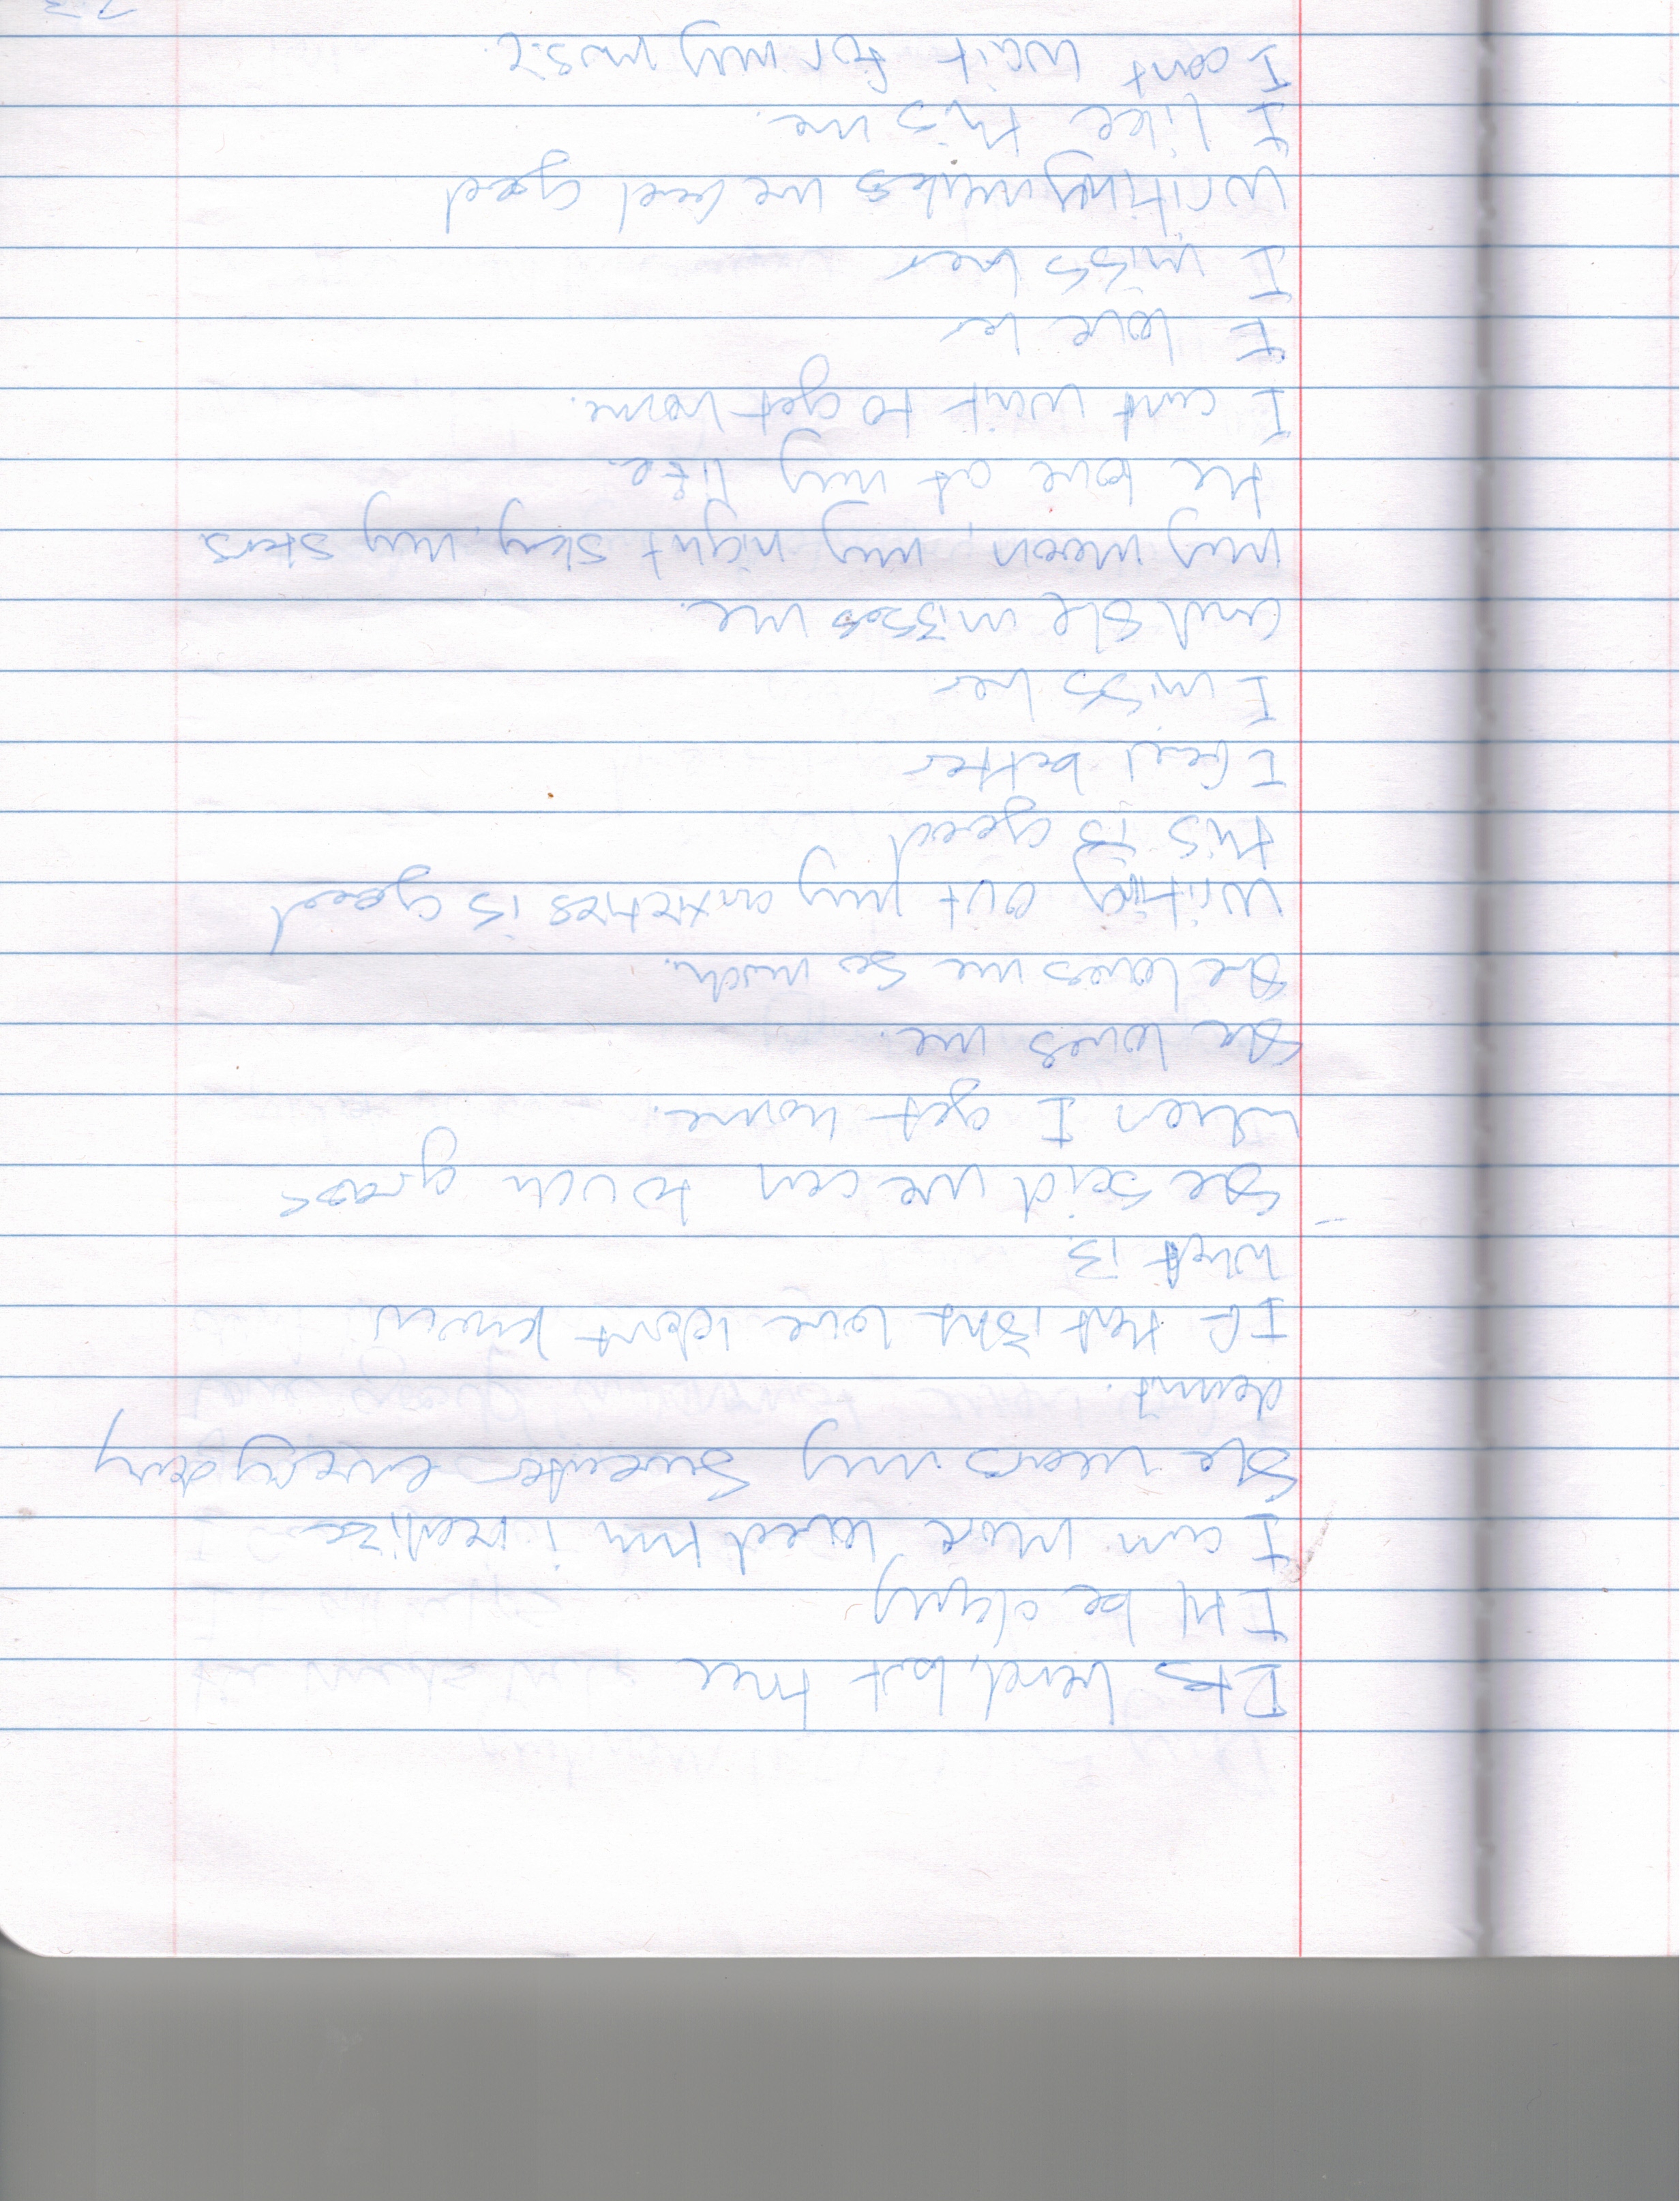 It's hard, but then
I'll be okay
I am more loved than i realize
She wears my sweater everyday
damnit.
If that isnt love idont know
what is
She said we can touch grass
when I get home.
She loves me.
She loves me so much.
Writing out my anxieties is good
this is good
I feel better
I miss her
and she misses me.
my moon, my night sky, my stars
the love of my life.
I cant wait to get home.
I love her
I miss her
Writing makes me feel good
I like this me.
I cant wait for my music